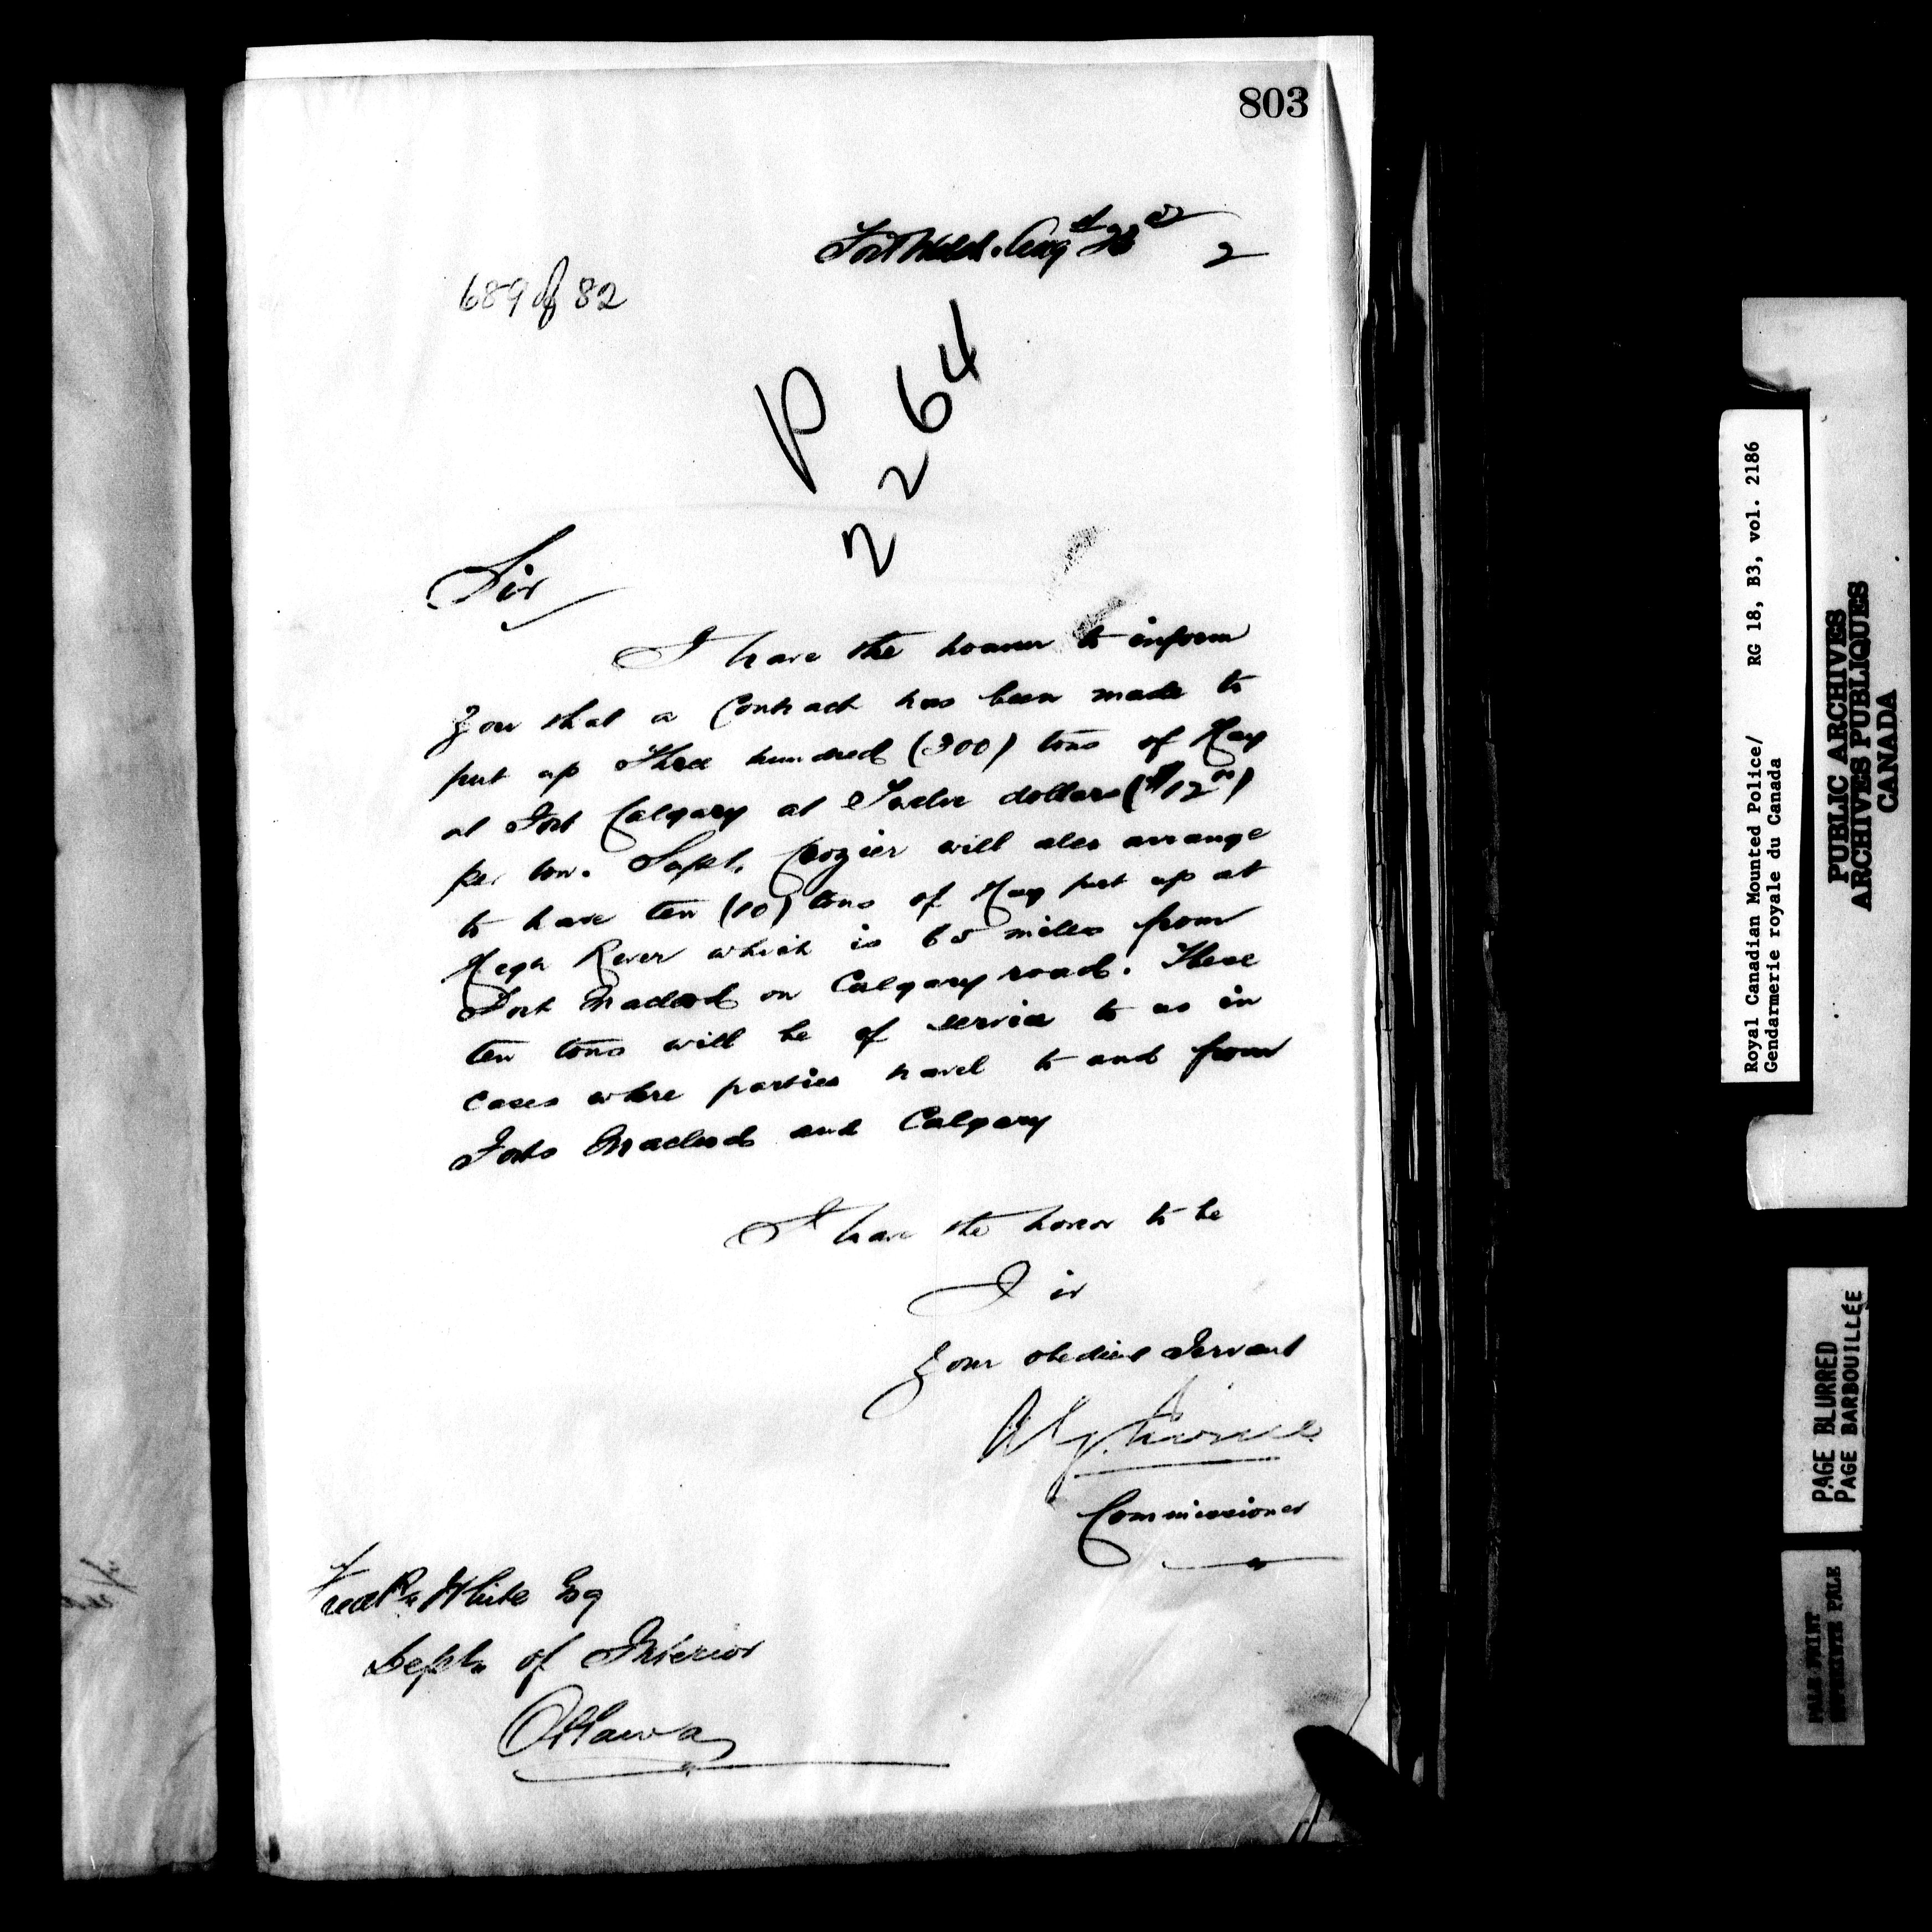 803
Fort Walsh. Augst 23rd 2
689 of 82
P
2264
Sir
I have the honour to inform
you that a Contract has been made to
put up Three hundred (300) tons of Hay
at Fort Calgary at Twelve dollars ($12.00)
per ton. Supt. Crozier will also arrange
to have ten (10) tons of Hay put up at
River which is 65 miles from
Fort Macleod on Calgary road. These
ten tons will be of service to us in
cases where parties travel to and from
Forts Macleod and Calgary
I have the honor to be
Sir
Your obedient Servant
A.G. Irvine
Commissioner
Fredk. White Esq
Dept. of Interior
Ottawa
Royal Canadian Mounted Police/ RG 18, B3, vol. 2186
Gendarmerie royale du Canada
PUBLIC ARCHIVES
ARCHIVES PUBLIQUES
CANADA
PAGE BLURRED
PAGE BARBOUILLÉE
PALE PRINT
PALE